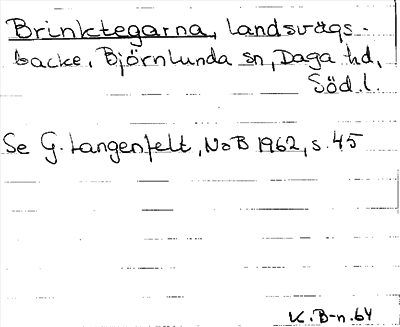 Brinktegarna, landsvägs-
backe, Björnlunda sn, Daga hd,
Söd.l.
Se G. Langenfelt, NoB 1962, s. 45
K. B-n. 64